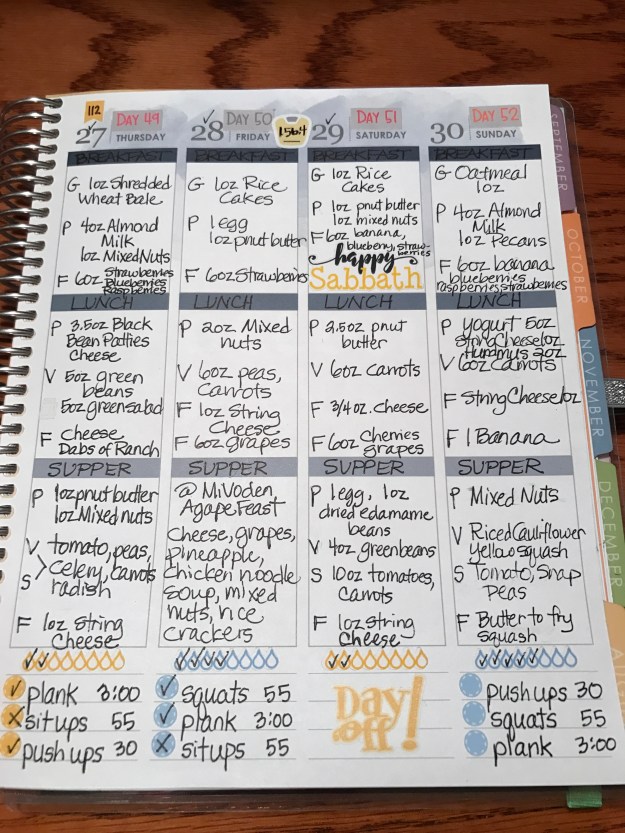 112
DAY 49
27 THURSDAY
BREAKFAST
G 1oz Shredded
Wheat Bale
P 4oz Almond
Milk
1oz Mixed Nuts
F 6oz Strawberries
Blueberries
Raspberries
LUNCH
P 3.5oz Black
Bean Patties
Cheese
V 5oz green
beans
5oz green salad
F Cheese
Dabs of Ranch
SUPPER
P 1oz pnut butter
1oz Mixed nuts
V tomato, peas,
S > celery, carrots
radish
F 1oz String
Cheese
plank 3:00
situps 55
push ups 30
DAY 50
28 FRIDAY
156.4
BREAKFAST
G 1oz Rice
Cakes
P 1 egg
1oz pnut butter
F 6oz Strawberries
LUNCH
P 2oz Mixed
nuts
V 6oz peas,
Carrots
F 1oz String
Cheese
F 6oz grapes
SUPPER
@ MiVoden
Agape Feast
Cheese, grapes,
pineapple,
chicken noodle
soup, mixed
nuts, rice
crackers
squats 55
plank 3:00
situps 55
DAY 51
29 SATURDAY
BREAKFAST
G 1oz Rice
Cakes
P 1oz pnut butter
1oz mixed nuts
F 6oz banana,
blueberry, straw-
berries
happy
Sabbath
LUNCH
P 2.5oz pnut
butter
V 6oz carrots
F 3/4 oz. cheese
F 6oz Cherries
grapes
SUPPER
P 1 egg, 1oz
dried edamame
beans
V 4oz green beans
S 10oz tomatoes,
carrots
F 1oz String
Cheese
Day
off!
DAY 52
30 SUNDAY
BREAKFAST
G Oatmeal
1oz
P 4oz Almond
Milk
1oz Pecans
F 6oz banana
blueberries
raspberries strawberries
LUNCH
P yogurt 5oz
String Cheese 1oz
Hummus 2oz
V 6oz Carrots
F String Cheese 1oz
F 1 Banana
SUPPER
P Mixed Nuts
V Riced Cauliflower
yellow squash
S Tomato, Snap
Peas
F Butter to fry
squash
push ups 30
squats 55
plank 3:00
SEPTEMBER
OCTOBER
NOVEMBER
DECEMBER